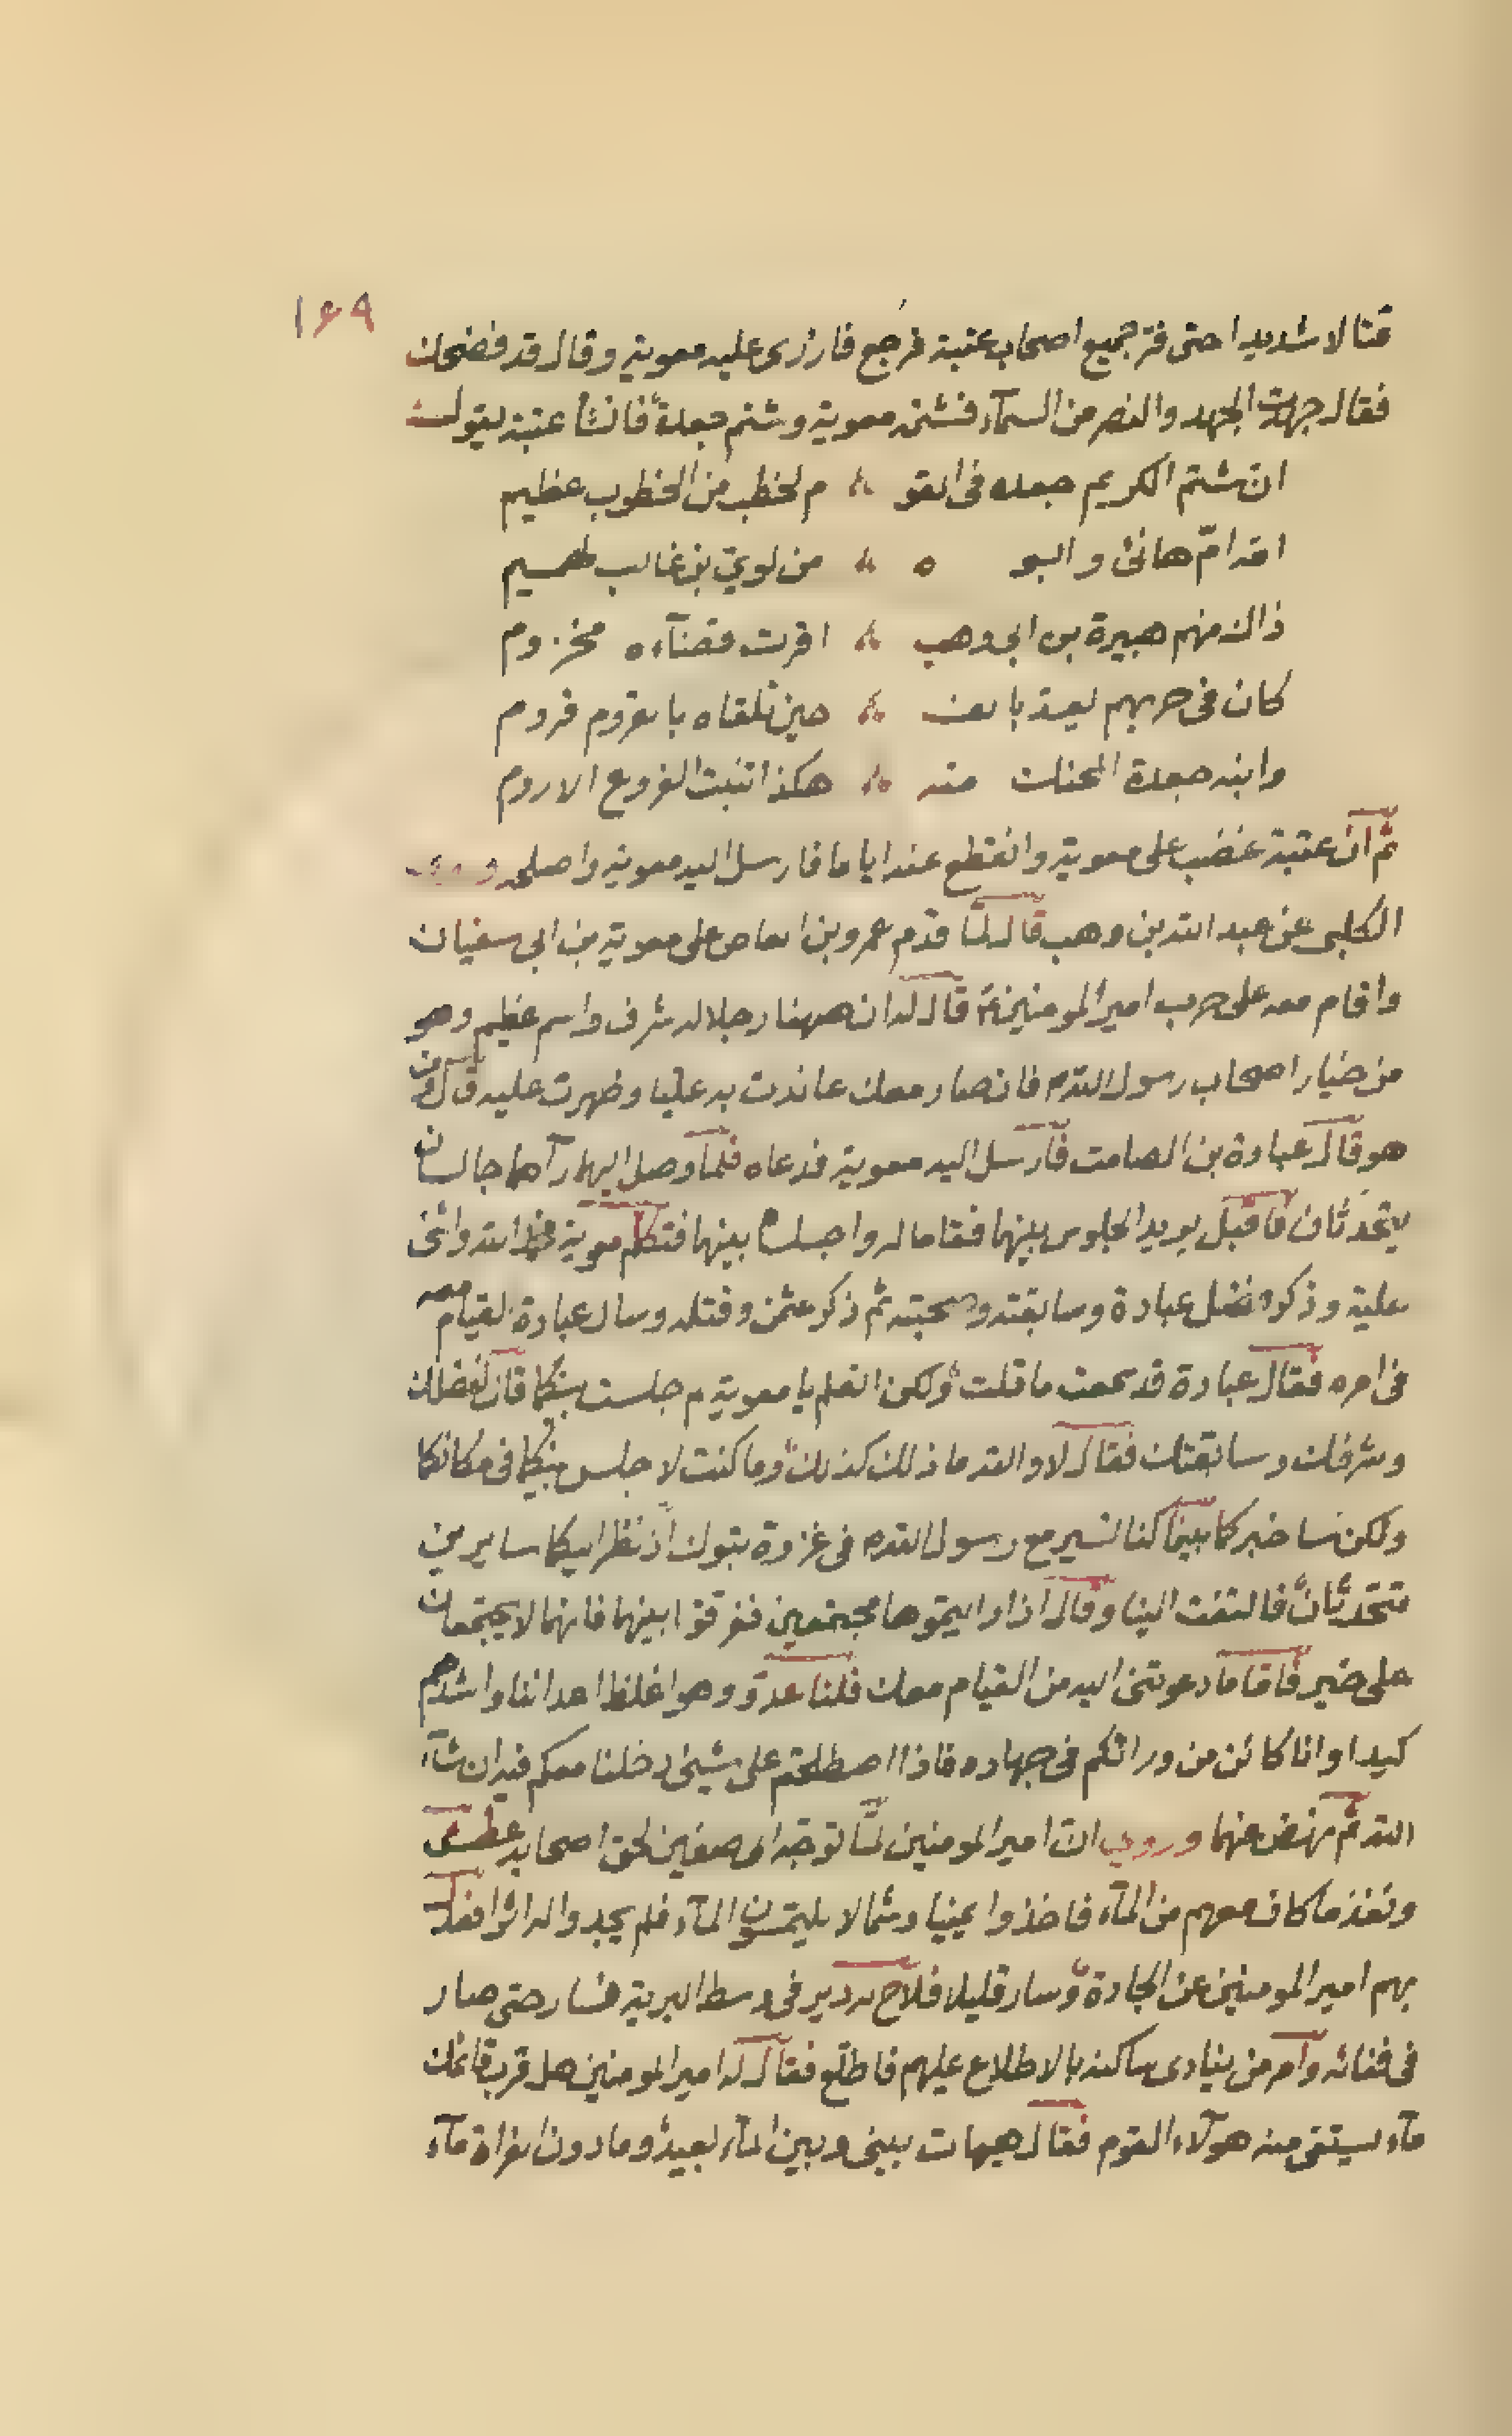 ١۶٩
قتالا شديدا حتى فرّ جميع اصحاب عتبة فرجع فازرى عليه معوية وقال قد فضحك
فقال جهدت الجهد والنصر من السمآء فشتمه معوية وشتم جعدة فانشأ عتبة يقول
ان شتم الكريم جعده فى القو م لخطب من الخطوب عظيم
امه امّ هانئ وابو ه من لوىّ بن غالب لصميم
ذاك منهم هبيرة بن ابى وهب اقرت بفضله مخزوم
كان فى حربهم يعد بالف حين تلقاه بالقروم قروم
وابنه جعدة منه هكذا تنبت الفروع الاروم
ثم ان عتبة غضب على معوية وانقطع عنه اياما فارسل اليه معوية واصلحه وروى
الكلبى عن عبد الله بن وهب قال لمّا قدم عمرو بن العاص على معوية بن ابى سفيان
واقام معه على حرب امير المومنين قال له ان ههنا رجلا له شرف واسم عظيم وهو
من خيار اصحاب رسول الله فان صار معك عاندت به عليا وظهرت عليه قال ومن
هو قال عبادة بن الصامت فارسل اليه معوية فدعاه فلمّا وصل اليهما رآهما جالسان
يتحدثان فاقبل يريد الجلوس بينهما فقاما له واجلساه بينهما فتكلم معوية فحمد الله واثنى
عليه وذكر فضل عبادة وسابقته وصحبته ثم ذكر عثمن وقتله وسال عبادة القيام معه
فى امره فقال عبادة قد سمعت ما قلت ولكن اتعلم يا معوية لم جلست بينكما قال لفضلك
وشرفك وسابقتك فقال لا والله ما ذلك كذلك وما كنت لاجلس بينكما فى مكانكما
ولكن ساخبركما بينا كنا نسير مع رسول الله فى غزوة تبوك اذ نظر اليكما سايرين
تتحدثان فالتفت الينا وقال اذا رايتموها مجتمعين ففرقوا بينهما فانهما لا يجتمعان
على خير فامّا ما دعوتنى اليه من القيام معك فلنا عدوّ وهو اغلظ اعدائنا واشدهم
كيدا وانا كائن من ورائكم فى جهاده فاذا اصطلحتم على شيئ دخلنا معكم فيه ان شآء
الله ثم نهض عنهما وروى ان امير المومنين لمّا توجّه الى صفين لحق اصحابه عطش
ونفذ ما كان معهم من المآء فاخذوا يمينا وشمالا يلتمسون المآء فلم يجدوا له اثرا فعدل
بهم امير المومنين عن الجادة وسار قليلا فلاح له دير فى وسط البرية فسار حتى صار
فى فنائه وامر من ينادى ساكنه بالاطلاع عليهم فاطلع فقال له امير المومنين هل قرب قائمك
مآء يستقى منه هولآء القوم فقال هيهات بينى وبين المآء بعيد وما دون الفراة مآء